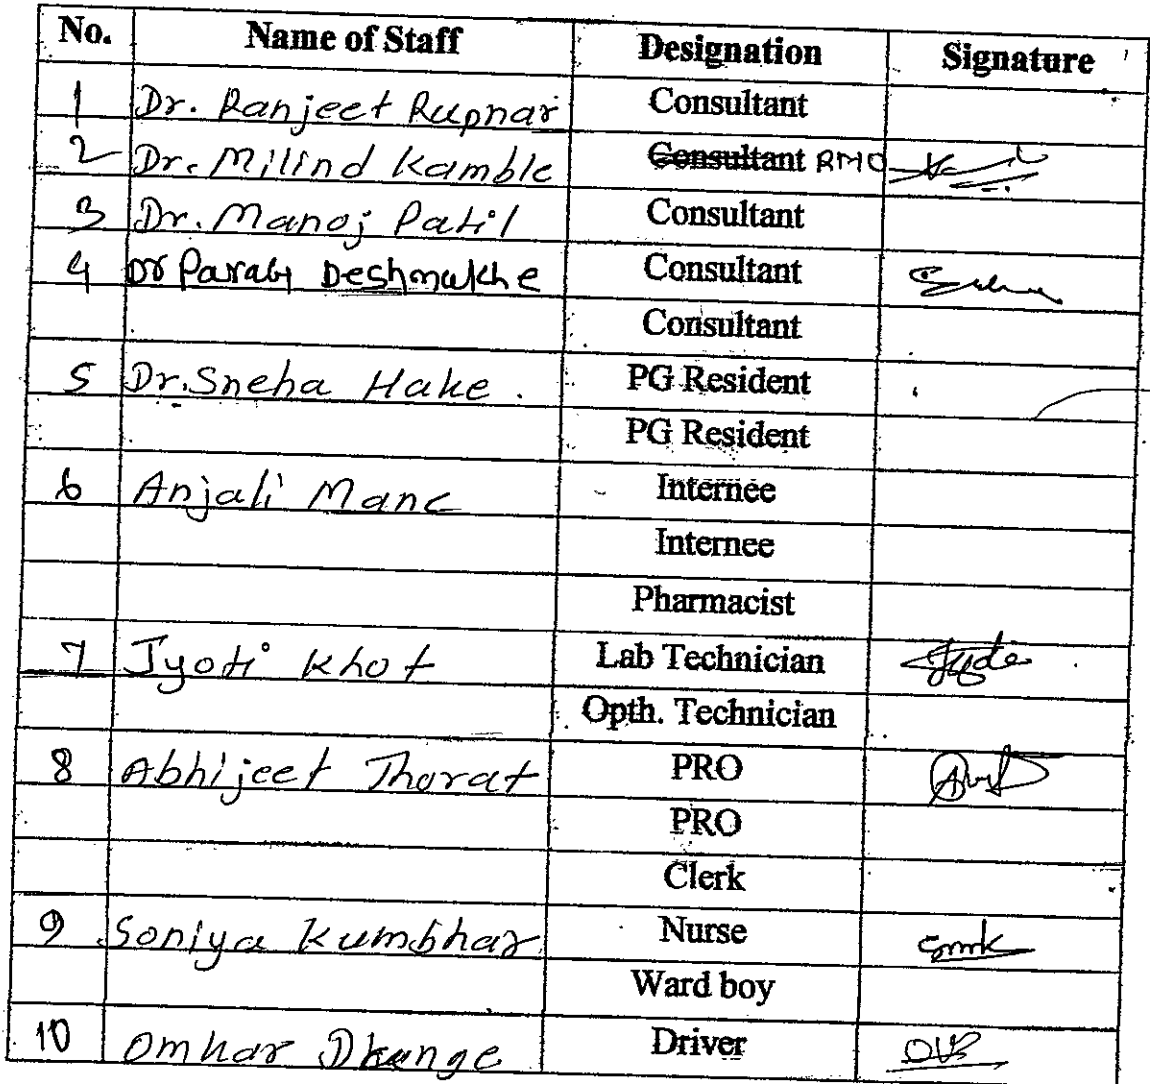 No. Name of Staff Designation Signature
1 Dr. Ranjeet Rupnar Consultant
2 Dr. Milind Kamble Consultant RMO
3 Dr. Manoj Patil Consultant
4 Dr Parag Deshmukhe Consultant
Consultant
5 Dr. Sneha Hake. PG Resident
PG Resident
6 Anjali Mane Internee
Internee
Pharmacist
7 Jyoti Khot Lab Technician
Opth. Technician
8 Abhijeet Thorat PRO
PRO
Clerk
9 Soniya Kumbhar Nurse
Ward boy
10 Omkar Dhange Driver OVB